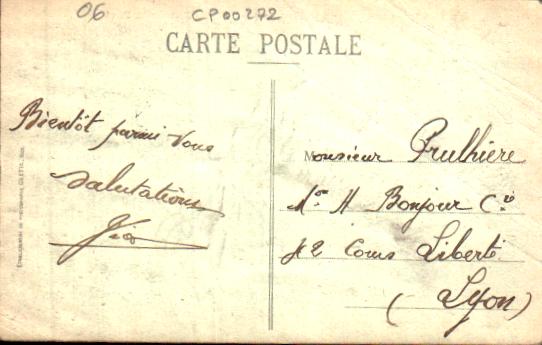 06
CP00272
CARTE POSTALE
Bientôt parmi vous
Salutations
Monsieur Prulhière
Mon A Bonjour Cie
72 Cours Liberté
(Lyon)